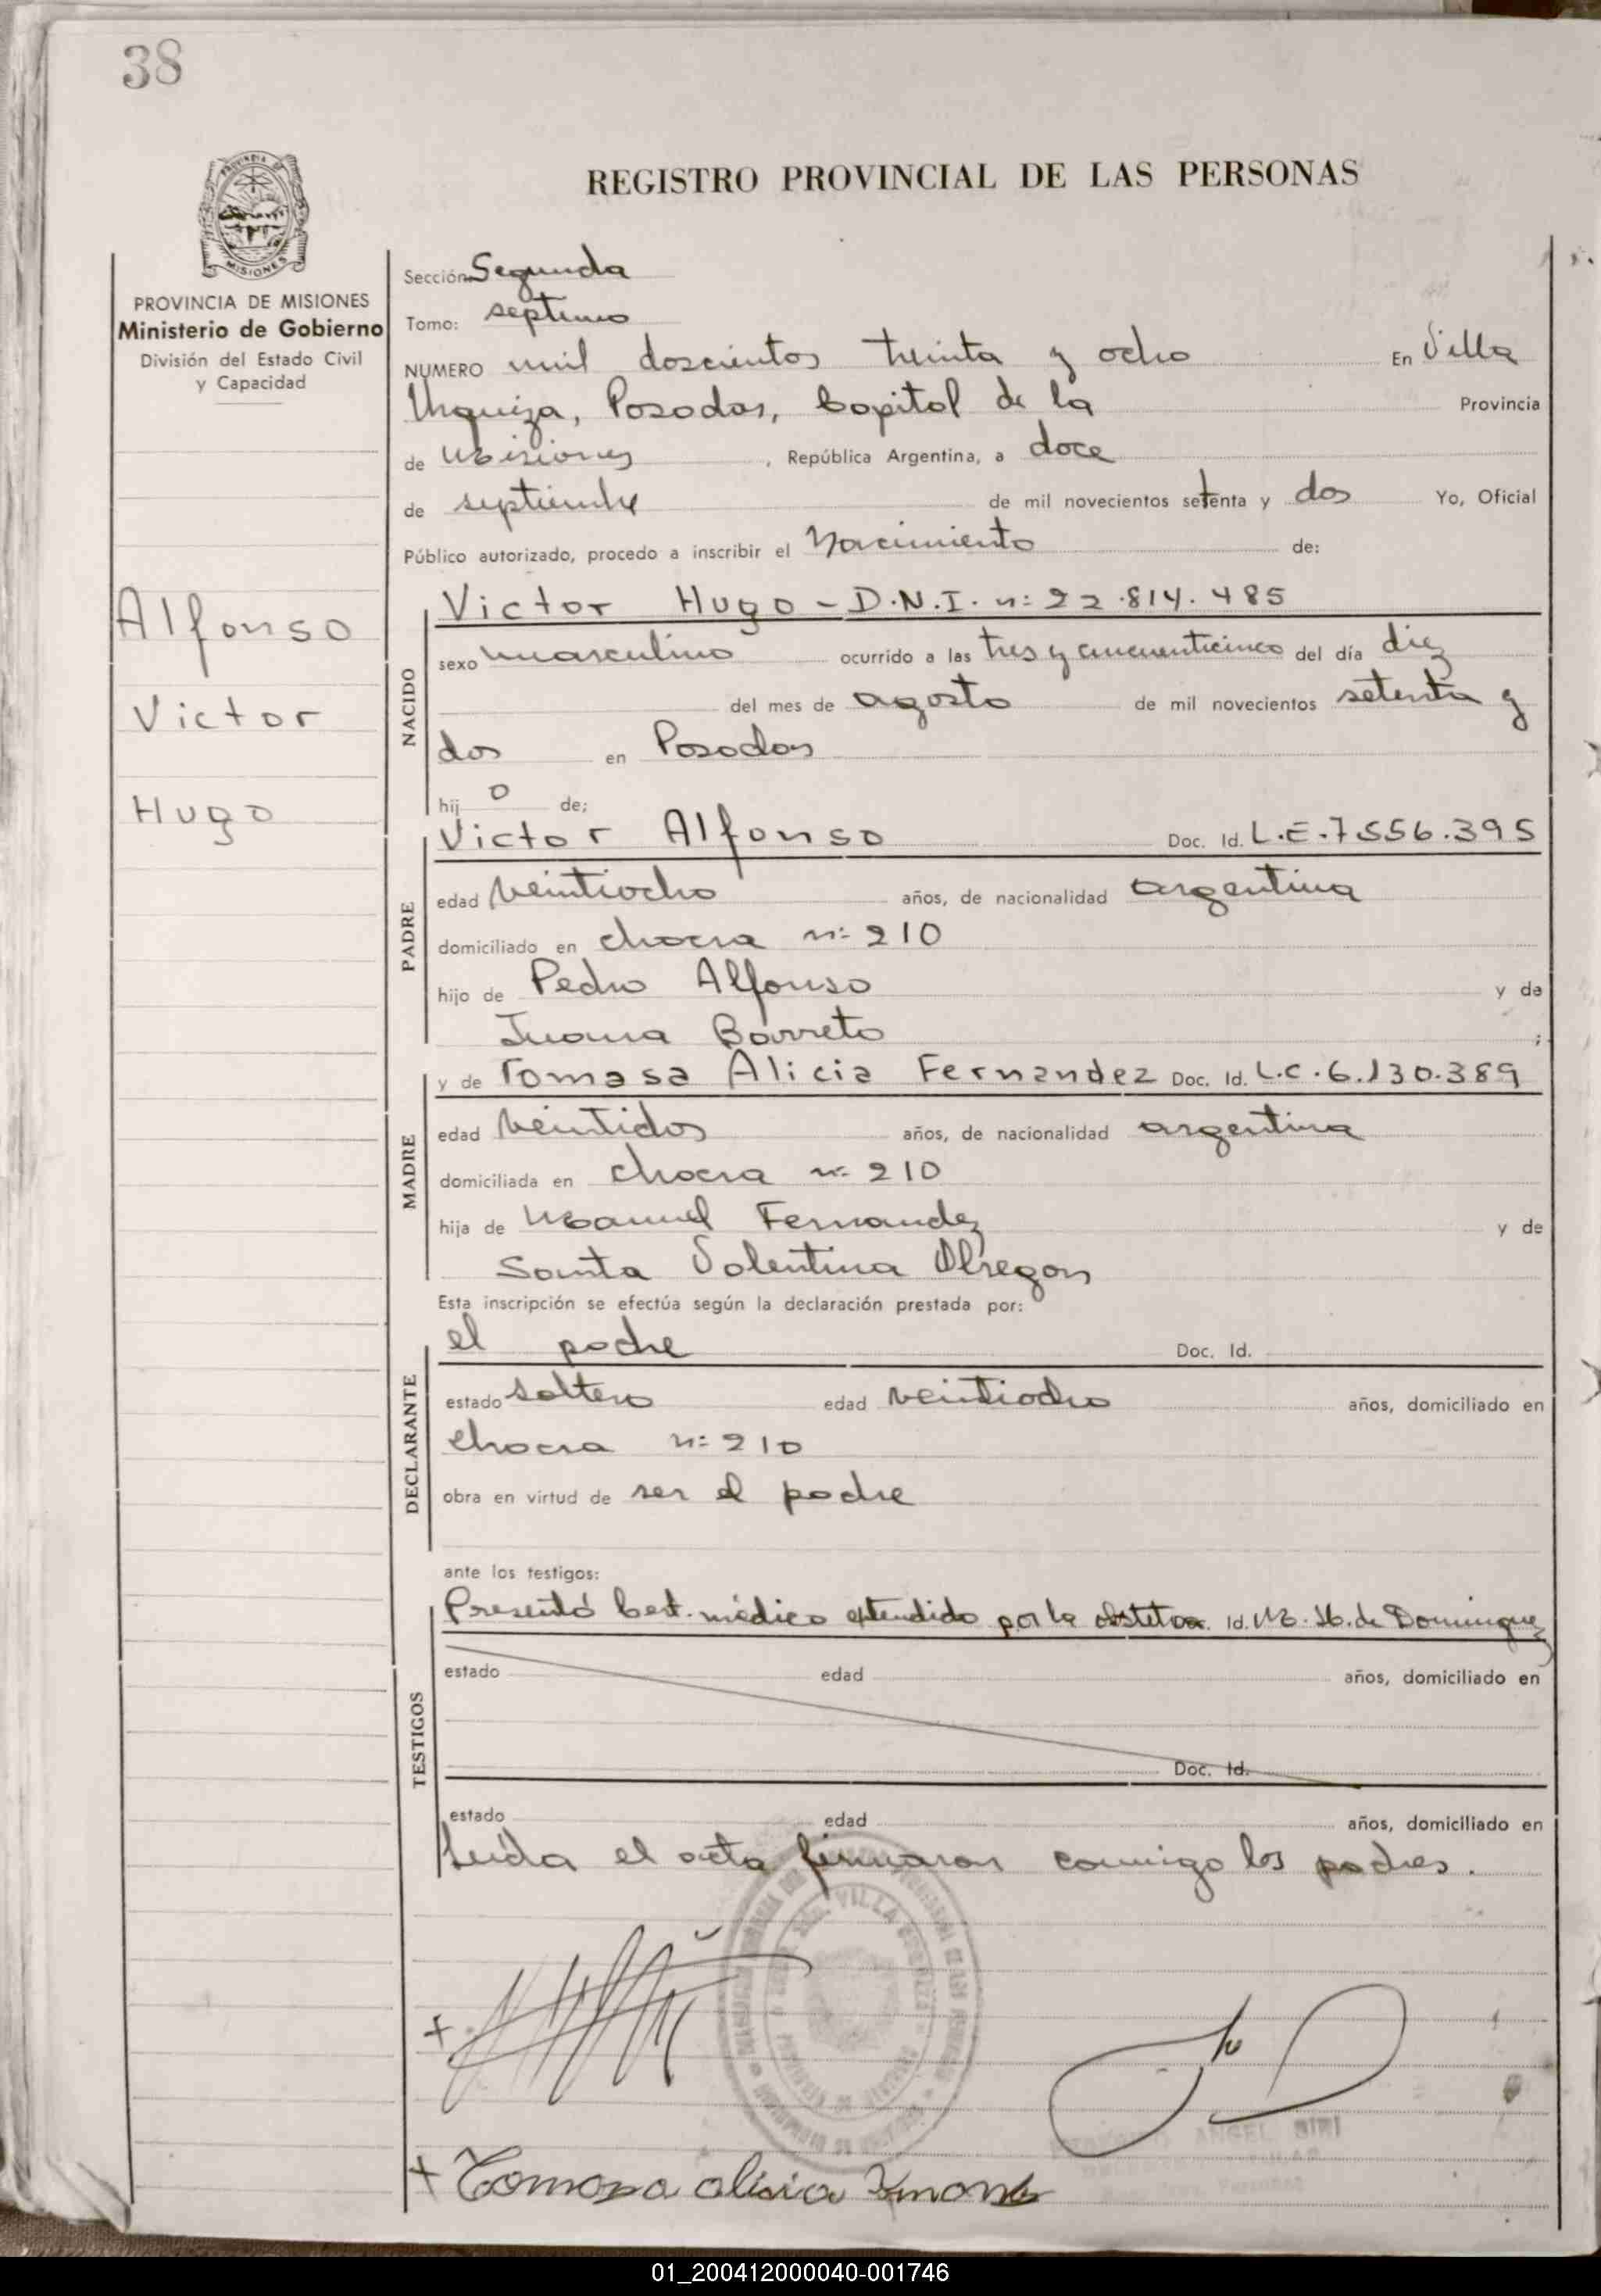 38
PROVINCIA DE MISIONES
Ministerio de Gobierno
División del Estado Civil
y Capacidad
REGISTRO PROVINCIAL DE LAS PERSONAS
Sección Segunda
Tomo: septimo
NUMERO mil doscientos treinta y ocho En Villa
Urquiza, Posadas, Capital de la Provincia
de Misiones, República Argentina, a doce
de septiembre de mil novecientos setenta y dos Yo, Oficial
Público autorizado, procedo a inscribir el Nacimiento de:
Alfonso
Victor
Hugo
NACIDO
Victor Hugo - D.N.I. n: 22.814.485
sexo masculino ocurrido a las tres y cincuenticinco del día diez
del mes de agosto de mil novecientos setenta y
dos en Posadas
hij o de;
PADRE
Victor Alfonso Doc. Id. L.E. 7.556.395
edad veintiocho años, de nacionalidad argentina
domiciliado en chacra n: 210
hijo de Pedro Alfonso y de
Juana Barreto ;
MADRE
y de Tomasa Alicia Fernandez Doc. Id. L.C. 6.130.389
edad veintidos años, de nacionalidad argentina
domiciliada en chacra n: 210
hija de Manuel Fernandez y de
Santa Valentina Obregon
Esta inscripción se efectúa según la declaración prestada por:
DECLARANTE
el padre Doc. Id.
estado soltero edad veintiocho años, domiciliado en
chacra n: 210
obra en virtud de ser el padre
ante los testigos:
TESTIGOS
Presentó Cert. médico extendido por la obstetra. Id. M. H. de Dominguez
estado edad años, domiciliado en
Doc. Id.
estado edad años, domiciliado en
Leída el acta firmaron conmigo los padres.
VILLA URQUIZA
ANGEL BIRI
+ Tomasa alicia
01_200412000040-001746